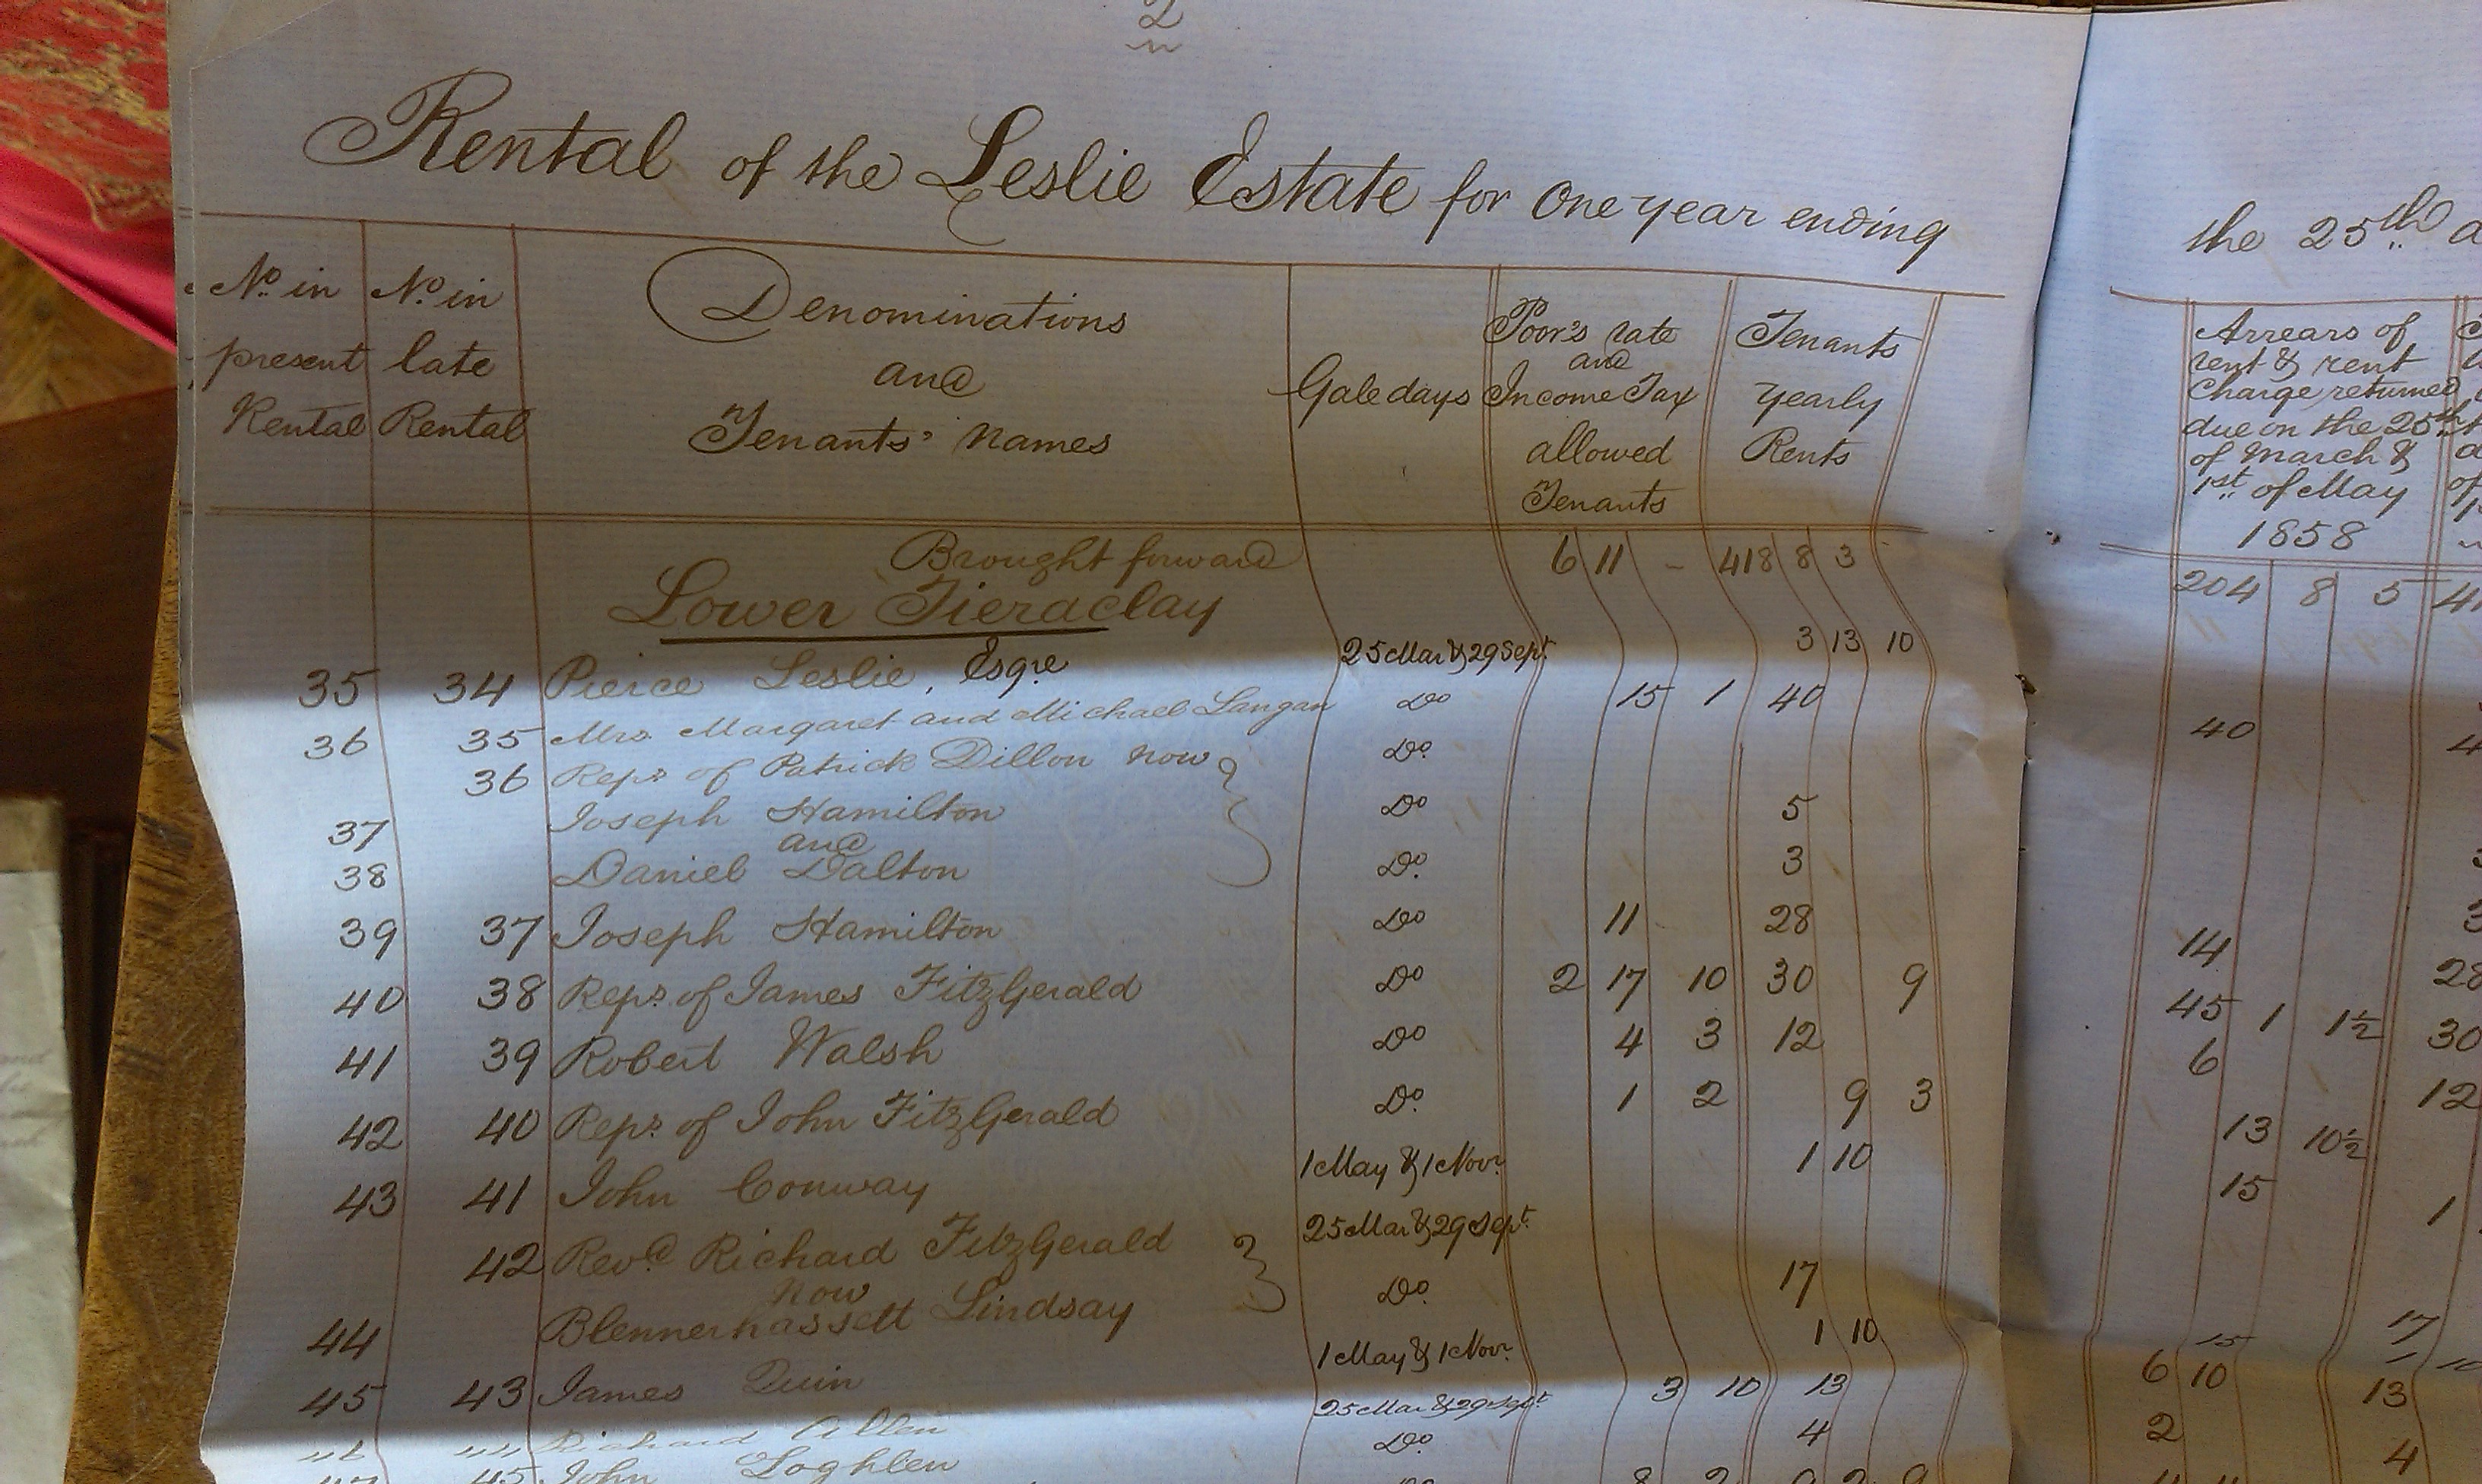 2
Rental of the Leslie Estate for One year ending
the 25th
No. in present Rental
No. in late Rental
Denominations and Tenants' Names
Gale days
Poor's rate and Income Tax allowed Tenants
Tenants Yearly Rents
Arrears of rent & rent Charge returned due on the 25th of March & 1st of May 1858
Brought forward 6 11 - 418 8 3 204 8 5
Lower Tieraclay
35 34 Pierce Leslie, Esqre 25 Mar & 29 Sept. 3 13 10
36 35 Mrs. Margaret and Michael Langan Do 15 1 40 40
36 Reps. of Patrick Dillon now Do.
37 Joseph Hamilton Do 5
and
38 Daniel Dalton Do. 3
39 37 Joseph Hamilton Do 11 - 28 14 28
40 38 Reps. of James FitzGerald Do 2 17 10 30 9 45 1 1½ 30
41 39 Robert Walsh Do 4 3 12 6 12
42 40 Reps. of John FitzGerald Do. 1 2 9 3 13 10½
43 41 John Conway 1 May & 1 Novr. 1 10 15 1
42 Revd. Richard FitzGerald 25 Mar & 29 Sept.
now
44 Blennerhassett Lindsay Do. 17 17
45 43 James Quin 1 May & 1 Novr. 1 10 15 1 10
Richard Allen 25 Mar & 29 Sept. 3 10 13 6 10 13
45 John Loghlen Do. 4 2 4
8 2 9 2 9